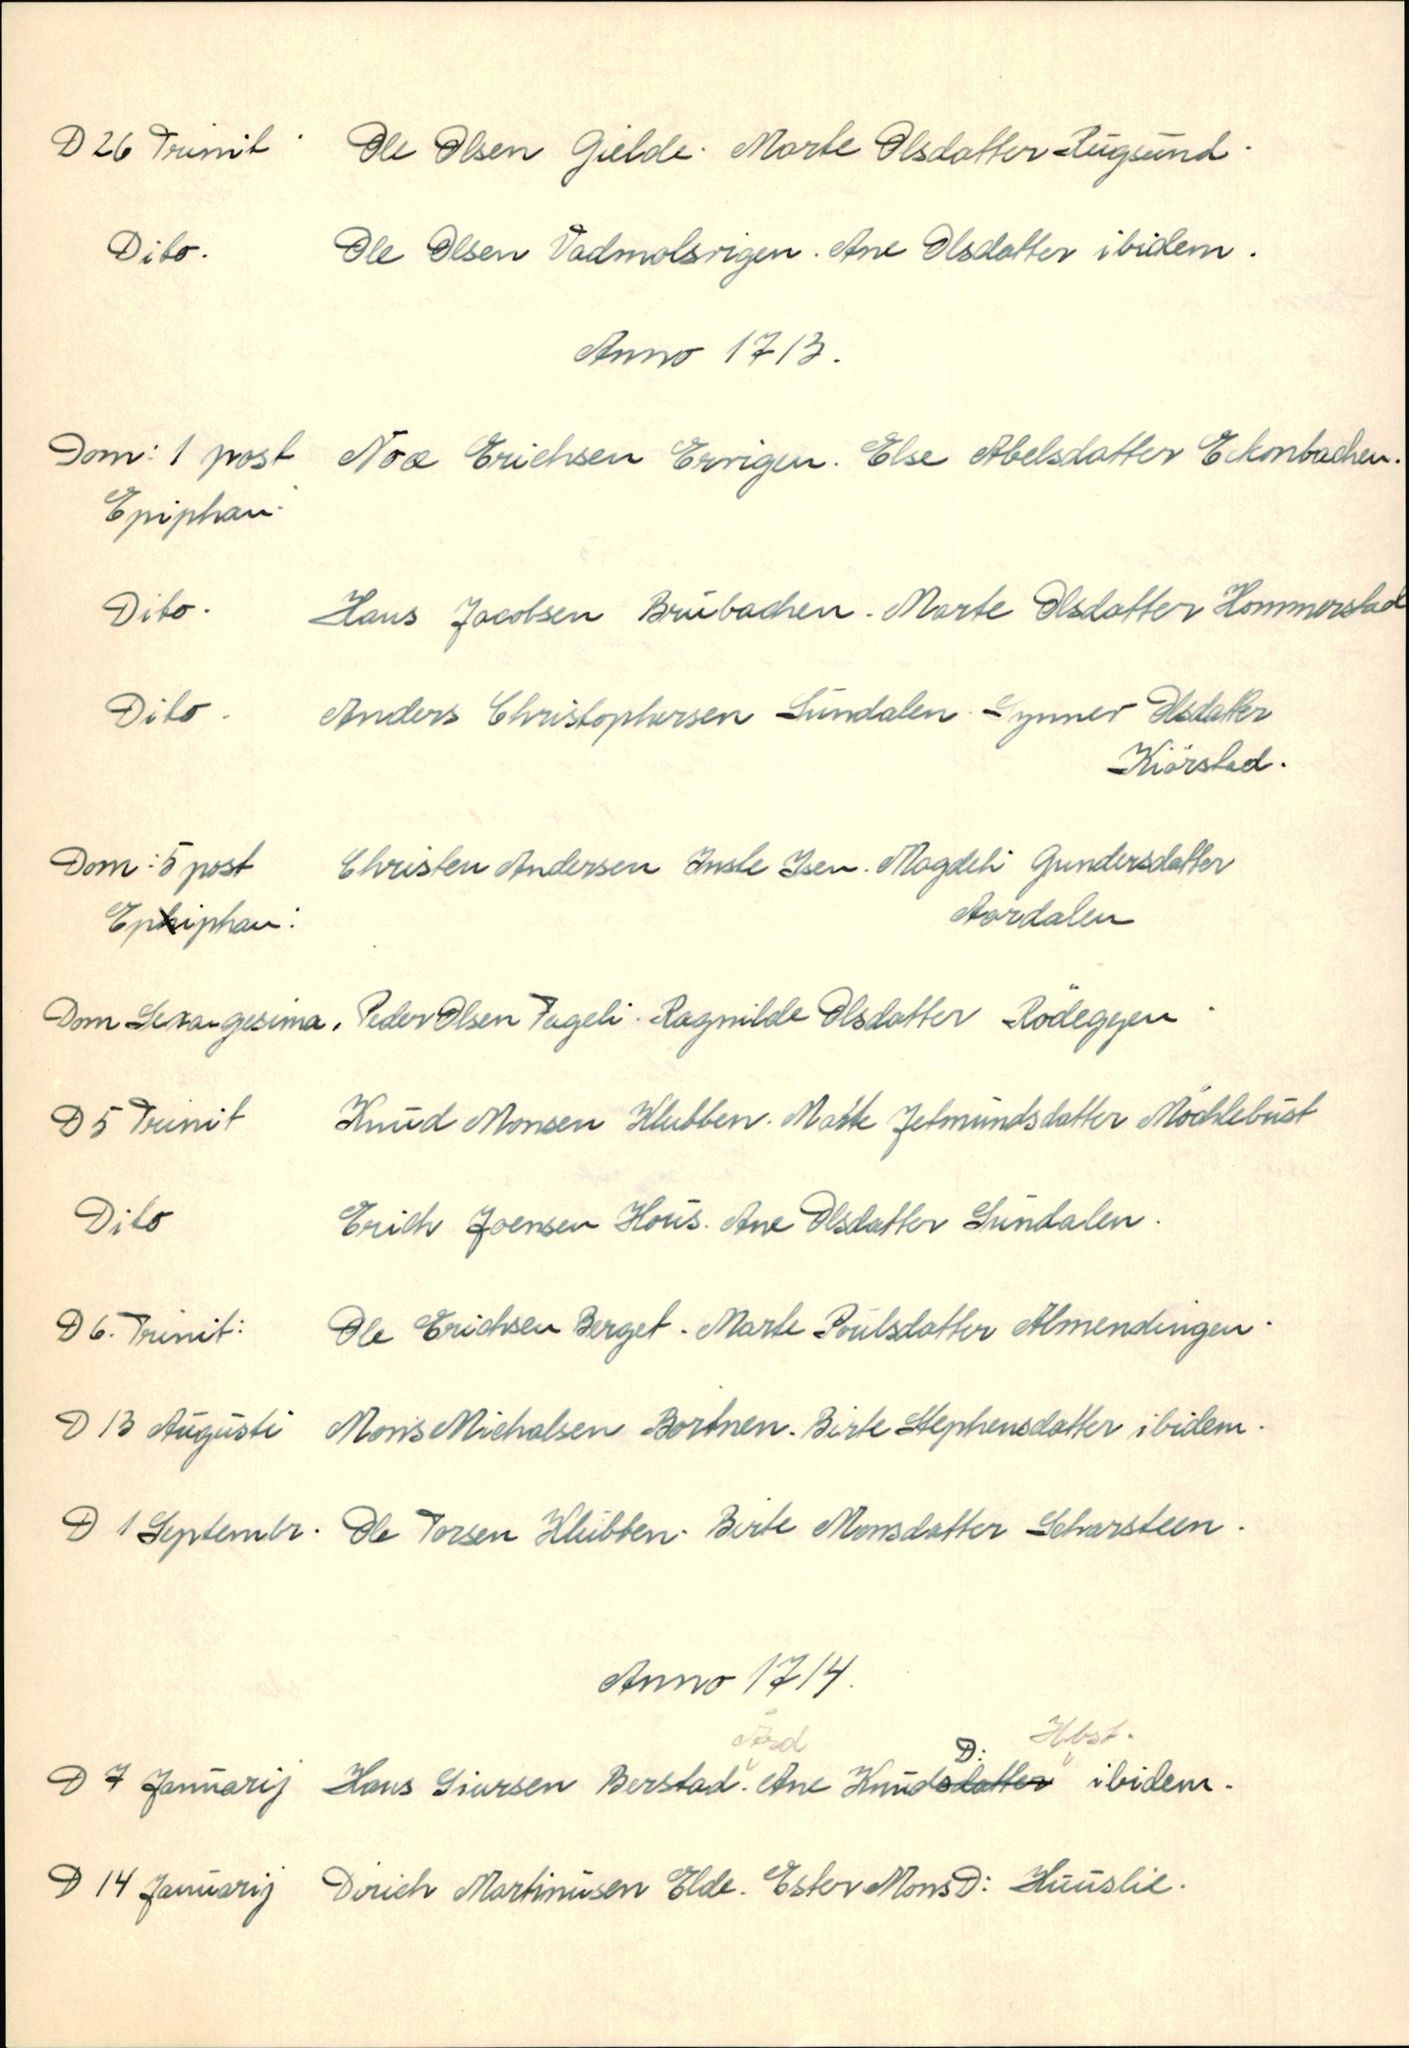 D 26 Trinit. Ole Olsen Gielde. Marte Olsdatter Rügsünd.
Dito. Ole Olsen Vadmolsvigen. Ane Olsdatter ibidem.
Anno 1713.
Dom: 1 post Noa Erichsen Ervigen. Else Abelsdatter Eckonbachen.
Epiphan:
Dito. Hans Jacobsen Brübachen. Marte Olsdatter Hommerstad
Dito. Anders Christophersen Sündalen. Synner Olsdatter
Kiörstad.
Dom: 5 post Christen Andersen Inste Isen. Magdeli Gundersdatter
Epiphan: Aardalen
Dom Sexagesima. Peder Olsen Fageli. Ragnilde Olsdatter Rödeggen.
D 5 Trinit Knüd Monsen Klubben. Marte Jetmündsdatter Möchlebüst
Dito Erich Joensen Hoüs. Ane Olsdatter Sündalen.
D 6. Trinit: Ole Erichsen Berget. Marte Poülsdatter Almendingen.
D 13 Augüsti Mons Michalsen Bortnen. Birte Stephensdatter ibidem.
D 1 Septembr. Ole Torsen Klübben. Birte Monsdatter Scharsteen.
Anno 1714.
Ard D: Hbst.
D 7 Januarij Hans Siursen Berstad. Ane Knüdsdatter ibidem.
D 14 Januarij Dirich Martinüsen Elde. Ester Mons D: Huüslie.